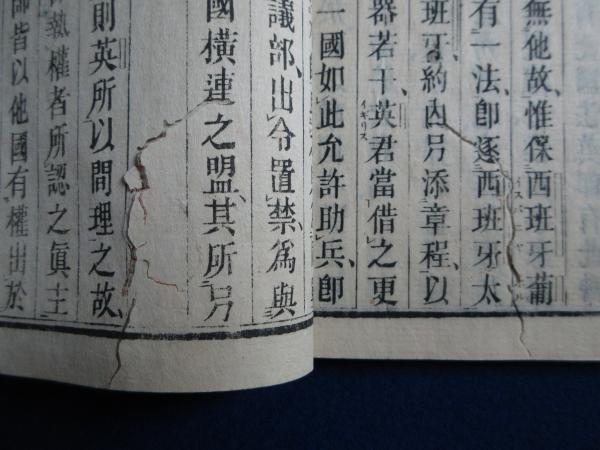 無他故、惟保西班牙葡
有一法卽逐西班牙太
班牙約內另添章程、以
器若干、英君當借之更
イギリス
一國如此允許助兵、卽
議部、出令置禁、爲與
國橫連之盟、其所另
則英所以間理之故、
執權者所認之眞主
皆以他國有權出於